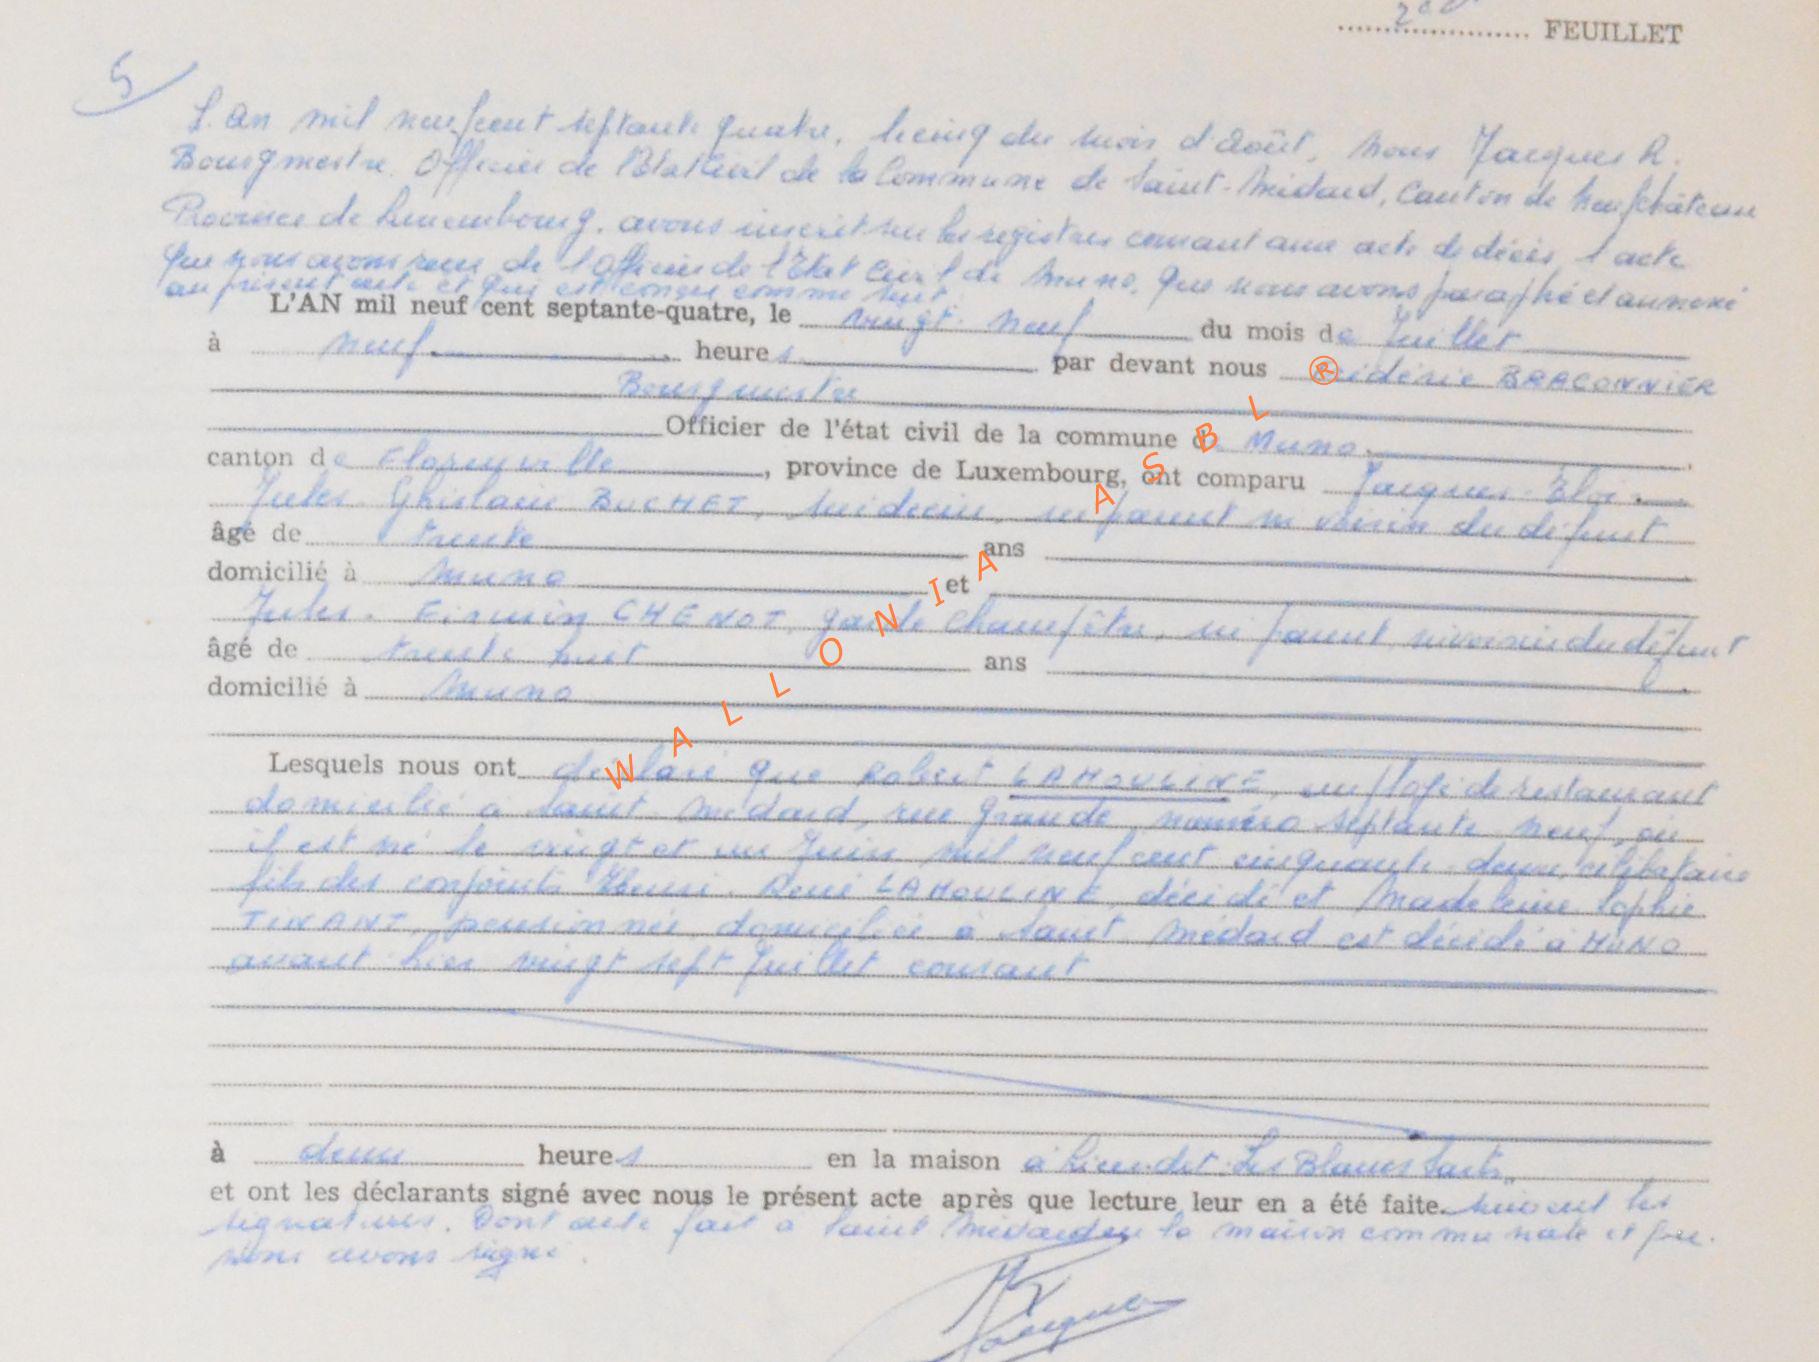 2ed FEUILLET
5
L'An mil neuf cent septante quatre, le cinq du mois d'Août, Nous Jacques R.
Bourgmestre, Officier de l'Etat Civil de la Commune de Saint-Médard, Canton de Neufchâteau
Province de Luxembourg, avons inscrit sur les registres courant aux acte de décès, l'acte
que nous avons reçu de l'Officier de l'Etat Civil de Muno, que nous avons paraphé et annexé
au présent acte et qui est conçu comme suit
L'AN mil neuf cent septante-quatre, le vingt-neuf du mois de Juillet
à neuf heures par devant nous BRACONNIER
Bourgmestre
Officier de l'état civil de la commune de Muno
canton de Florenville, province de Luxembourg, ont comparu Jacques-Eloi-
Jules-Ghislain BUCHET, médecin, ni parent ni voisin du défunt
âgé de trente ans
domicilié à Muno et
Jules-Firmin CHENOT, garde champêtre, ni parent, ni voisin du défunt
âgé de trente huit ans
domicilié à Muno
Lesquels nous ont déclaré que Robert LAMOULINE, employé de restaurant
domicilié à Saint-Médard, rue Grande, numéro septante neuf, où
il est né le vingt et un Juin mil neuf cent cinquante-deux, célibataire
fils des conjoints Henri-René LAMOULINE, décédé et Madeleine Sophie
TINANT, pensionnée, domiciliée à Saint Médard est décédé à MUNO
avant-hier vingt sept Juillet courant
à deux heures en la maison à lieu-dit Les Blancs Sarts,
et ont les déclarants signé avec nous le présent acte après que lecture leur en a été faite. suivent les
signatures. Dont acte fait à Saint Médard en la maison communale et que
nous avons signé.
Jacques
WALLONIA ASBL ®